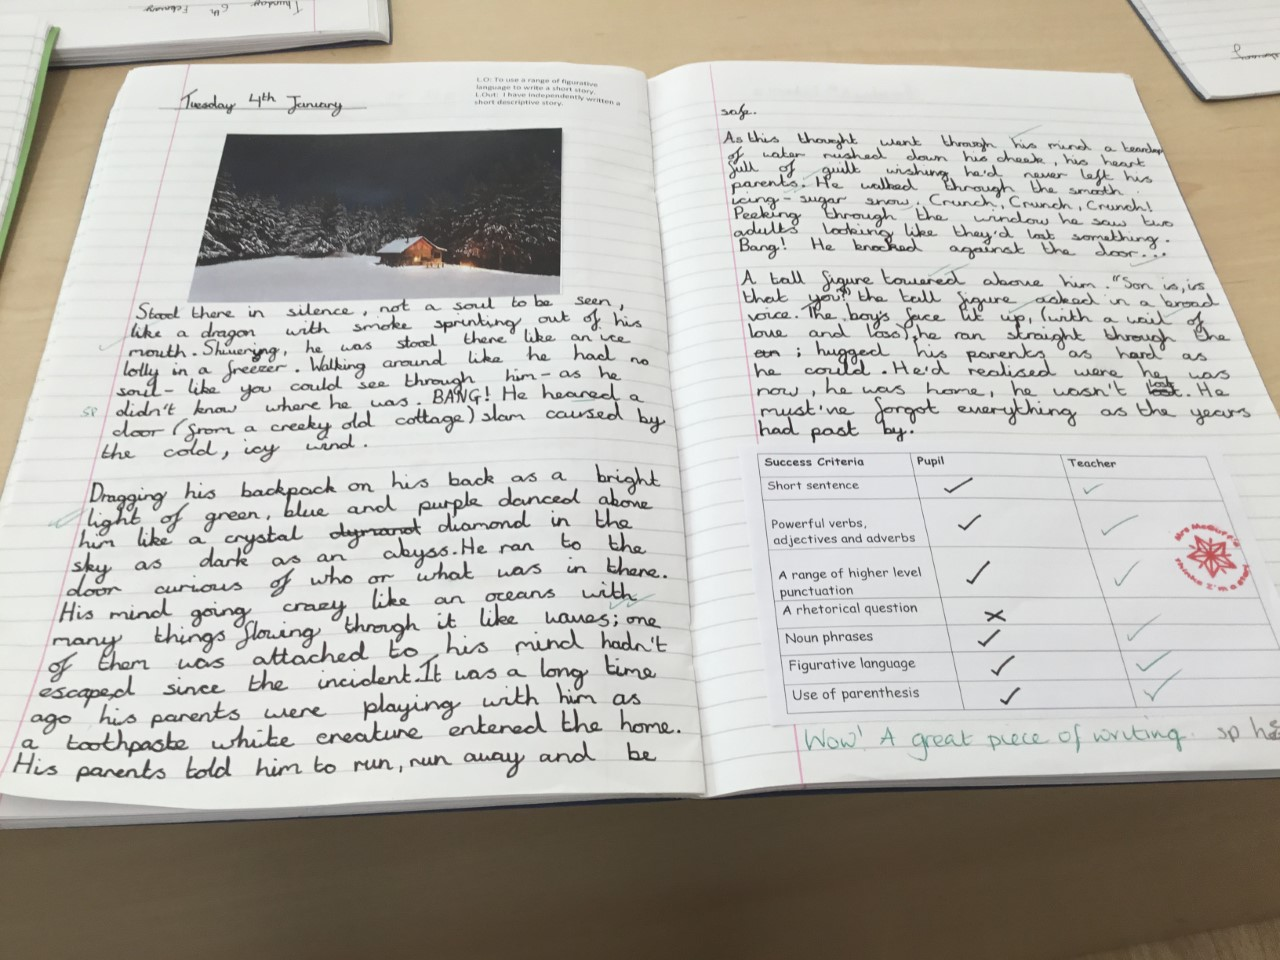 Thursday 6th February
Tuesday 4th January
L.O: To use a range of figurative
language to write a short story.
L.Out: I have independently written a
short descriptive story.
Stood there in silence, not a soul to be seen,
like a dragon with smoke sprinting out of his
mouth. Shivering, he was stood there like an ice
lolly in a freezer. Walking around like he had no
soul - like you could see through him - as he
sp
didn't know where he was. BANG! He heared a
door (from a creeky old cottage) slam caused by
the cold, icy wind.
Dragging his backpack on his back as a bright
light of green, blue and purple danced above
him like a crystal diamond in the
sky as dark as an abyss. He ran to the
door curious of who or what was in there.
His mind going crazy like an oceans with
many things flowing through it like waves; one
of them was attached to his mind hadn't
escaped since the incident. It was a long time
ago his parents were playing with him as
a toothpaste white creature entered the home.
His parents told him to run, run away and be
safe.
As this thought went through his mind a teardrop
of water rushed down his cheek, his heart
full of guilt wishing he'd never left his
parents. He walked through the smooth
icing-sugar snow. Crunch, Crunch, Crunch!
Peeking through the window he saw two
adults looking like they'd lost something.
Bang! He knocked against the door...
A tall figure towered above him. "Son is, is
that you?" the tall figure asked in a broad
voice. The boy's face lit up, (with a wail of
love and loss), he ran straight through the
; hugged his parents as hard as
he could. He'd realised were he was
now, he was home, he wasn't lost. He
must've forgot everything as the years
had past by.
Success Criteria Pupil Teacher
Short sentence
Powerful verbs,
adjectives and adverbs
A range of higher level
punctuation
A rhetorical question
Noun phrases
Figurative language
Use of parenthesis
Mrs McGurk's
thinks I'm a star
Wow! A great piece of writing. sp